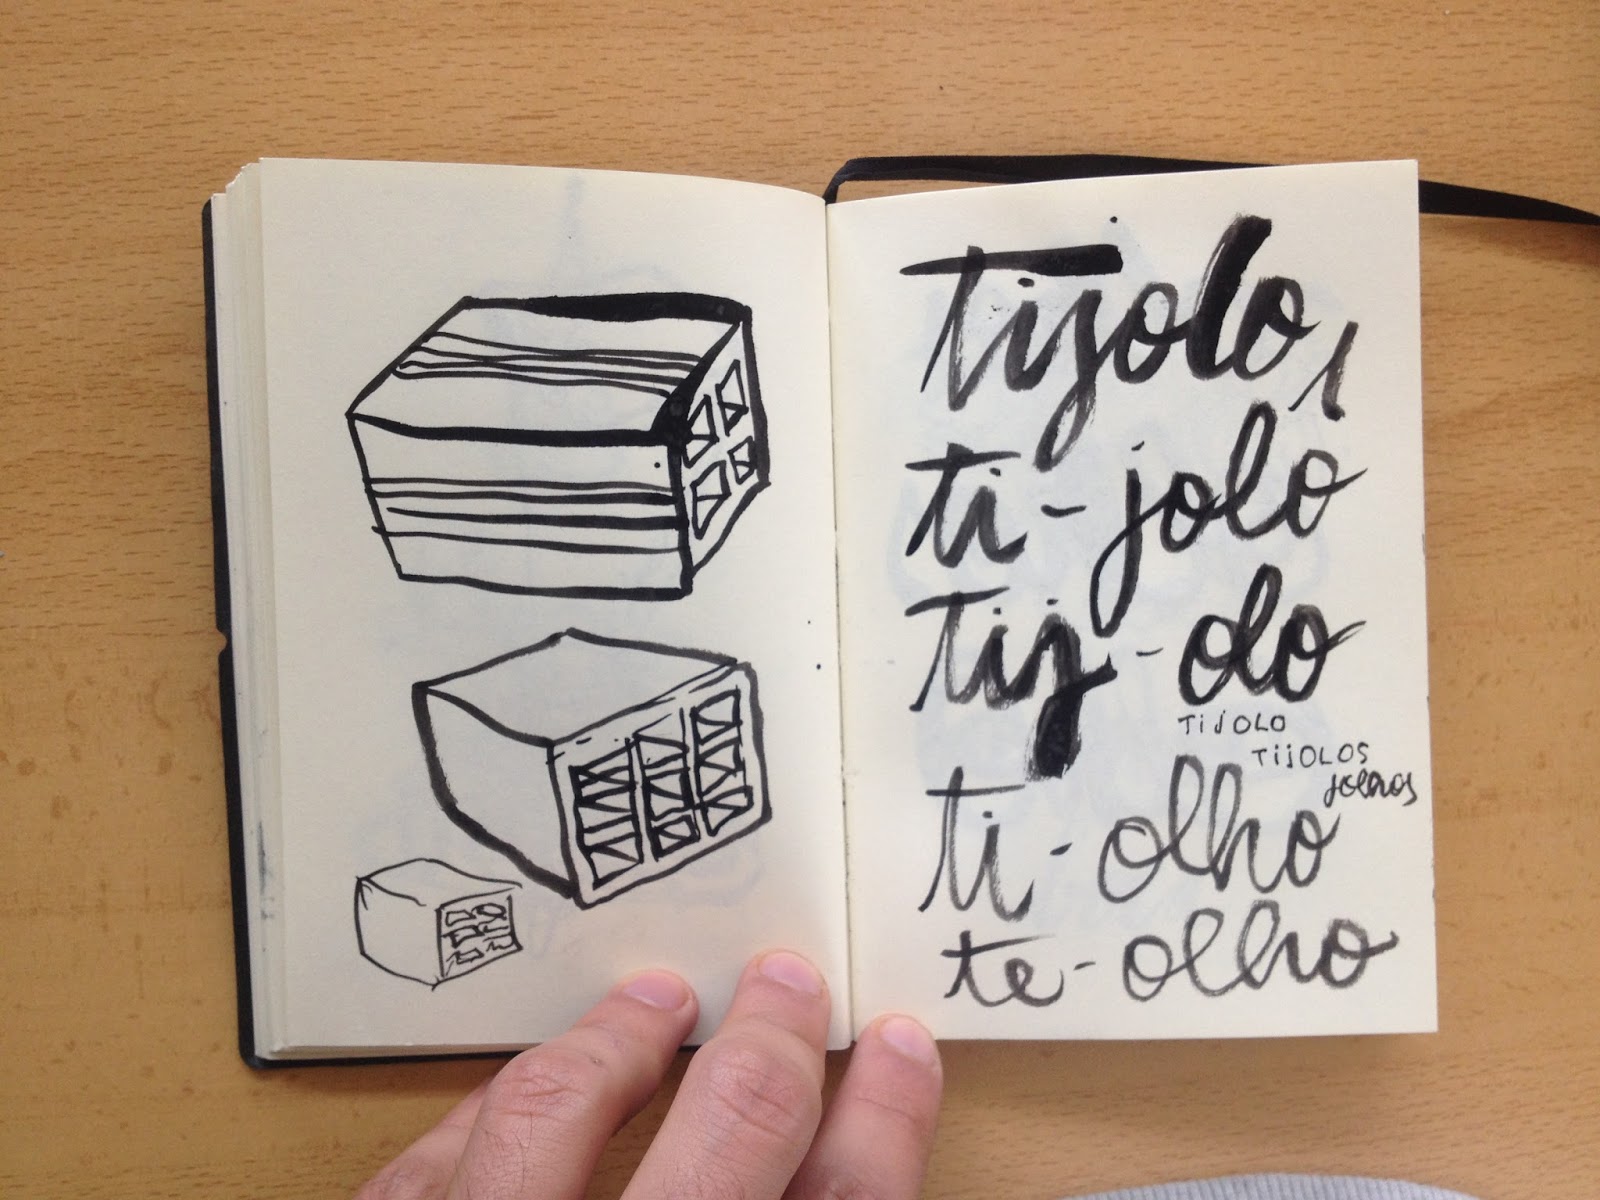 tijolo,
ti-jolo
tij-olo
TIJOLO
TIJOLOS
ti-olho
te-olho